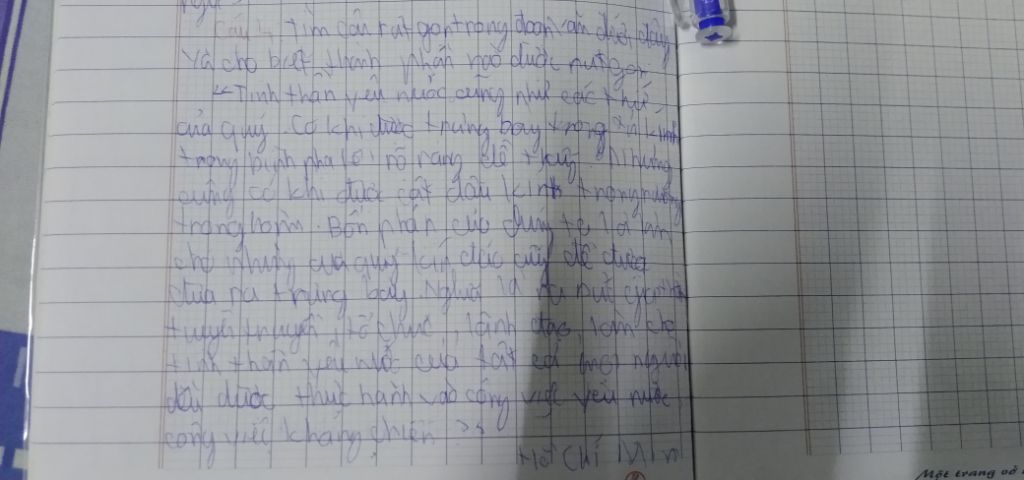 Câu 1, Tìm câu rút gọn trong đoạn văn dưới đây
Và cho biết thành phần nào được rút gọn
"Tinh thần yêu nước cũng như các thứ
của quý. Có khi được trưng bày trong tủ kính
trong bình pha lê, rõ ràng dễ thấy. Nhưng
cũng có khi được cất dấu kín trong rương
trong hòm. Bổn phận của chúng ta là làm
cho những của quý kín đáo ấy đề được
đưa ra trưng bày. Nghĩa là ra sức
tuyên truyền, tổ chức, lãnh đạo, làm cho
tinh thần yêu nước của tất cả mọi người
đều được thực hành vào công việc yêu nước
công việc kháng chiến."
Hồ Chí Min
Một trang vở